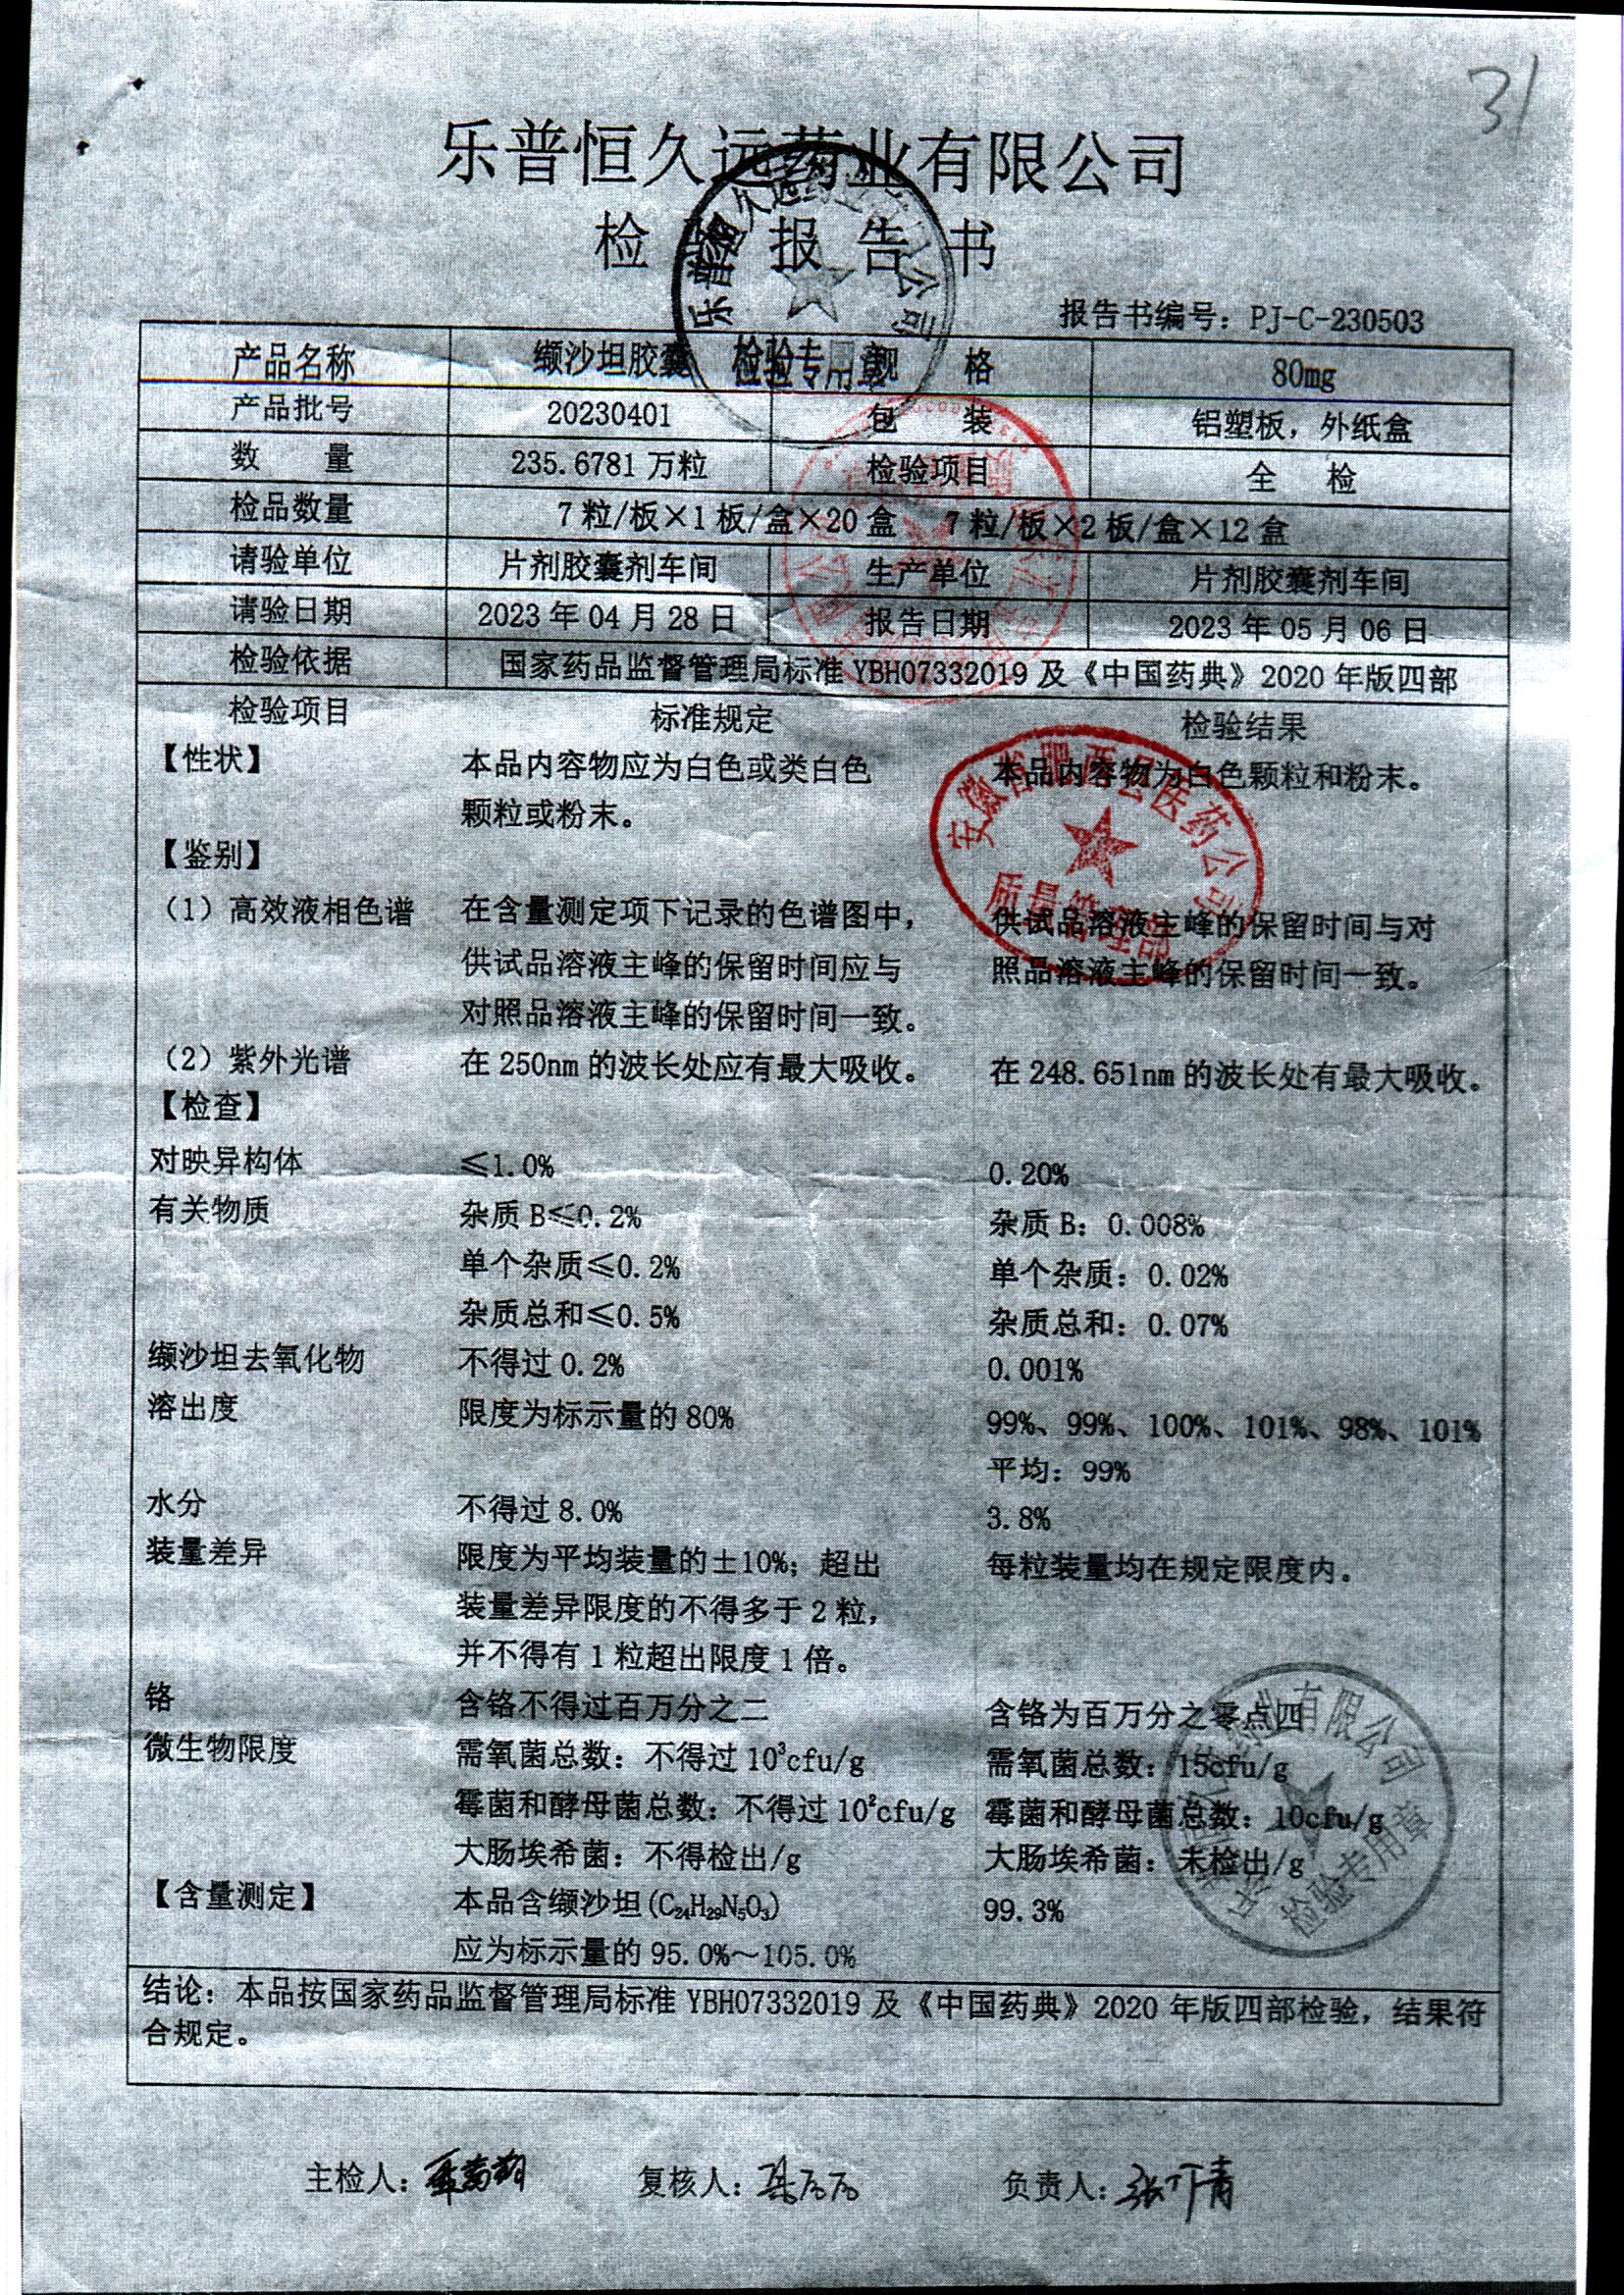 31
乐普恒久远药业有限公司
检验报告书
报告书编号：PJ-C-230503
产品名称 缬沙坦胶囊 规 格 80mg
产品批号 20230401 包 装 铝塑板，外纸盒
数 量 235.6781万粒 检验项目 全 检
检品数量 7粒/板×1板/盒×20盒 7粒/板×2板/盒×12盒
请验单位 片剂胶囊剂车间 生产单位 片剂胶囊剂车间
请验日期 2023年04月28日 报告日期 2023年05月06日
检验依据 国家药品监督管理局标准YBH07332019及《中国药典》2020年版四部
检验项目 标准规定 检验结果
【性状】 本品内容物应为白色或类白色 本品内容物为白色颗粒和粉末。
颗粒或粉末。
【鉴别】
（1）高效液相色谱 在含量测定项下记录的色谱图中， 供试品溶液主峰的保留时间与对
供试品溶液主峰的保留时间应与 照品溶液主峰的保留时间一致。
对照品溶液主峰的保留时间一致。
（2）紫外光谱 在250nm的波长处应有最大吸收。 在248.651nm的波长处有最大吸收。
【检查】
对映异构体 ≤1.0% 0.20%
有关物质 杂质B≤0.2% 杂质B：0.008%
单个杂质≤0.2% 单个杂质：0.02%
杂质总和≤0.5% 杂质总和：0.07%
缬沙坦去氧化物 不得过0.2% 0.001%
溶出度 限度为标示量的80% 99%、99%、100%、101%、98%、101%
平均：99%
水分 不得过8.0% 3.8%
装量差异 限度为平均装量的±10%；超出 每粒装量均在规定限度内。
装量差异限度的不得多于2粒，
并不得有1粒超出限度1倍。
铬 含铬不得过百万分之二 含铬为百万分之零点四
微生物限度 需氧菌总数：不得过10³cfu/g 需氧菌总数：15cfu/g
霉菌和酵母菌总数：不得过10²cfu/g 霉菌和酵母菌总数：10cfu/g
大肠埃希菌：不得检出/g 大肠埃希菌：未检出/g
【含量测定】 本品含缬沙坦(C₂₄H₂₉N₅O₃) 99.3%
应为标示量的95.0%～105.0%
结论：本品按国家药品监督管理局标准YBH07332019及《中国药典》2020年版四部检验，结果符
合规定。
主检人： 复核人： 负责人：
乐普恒久远药业有限公司
检验专用章
质量管理部
检验专用章